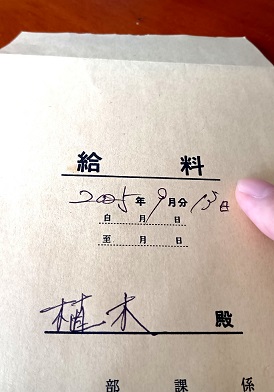 給 料
2005年9月分 15日
自 月 日
至 月 日
植木 殿
部 課 係